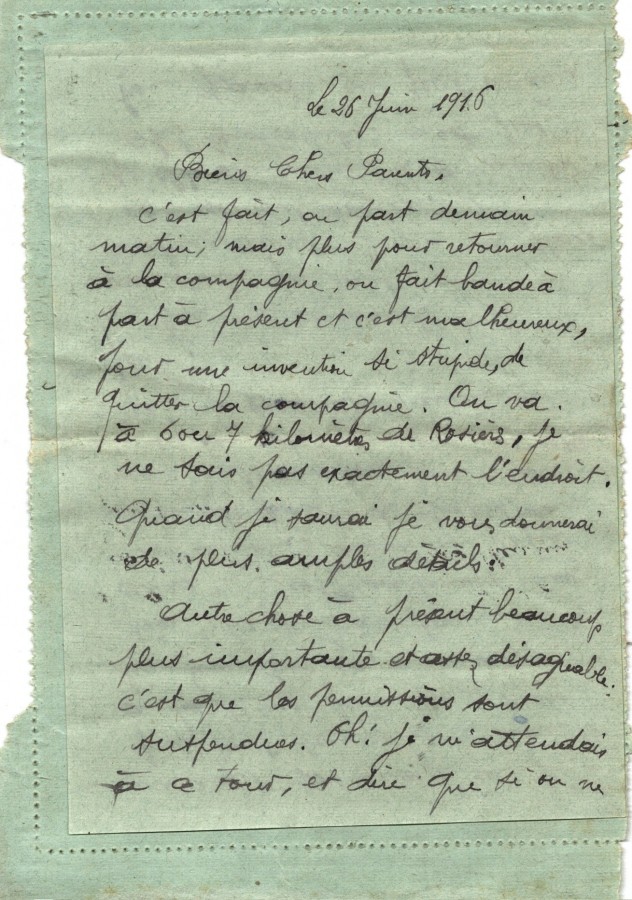 Le 26 Juin 1916
Biens Chers Parents,
c'est fait, on part demain
matin; mais plus pour retourner
à la compagnie, on fait bande à
part à présent et c'est malheureux,
pour une invention si stupide, de
quitter la compagnie. On va
à 6 ou 7 kilomètres de Rosiers, je
ne sais pas exactement l'endroit.
Quand je saurai je vous donnerai
de plus amples détails.
Autre chose à présent beaucoup
plus importante et assez désagréable.
c'est que les permissions sont
suspendues. Oh! je m'attendais
à ce tour, et dire que si on ne